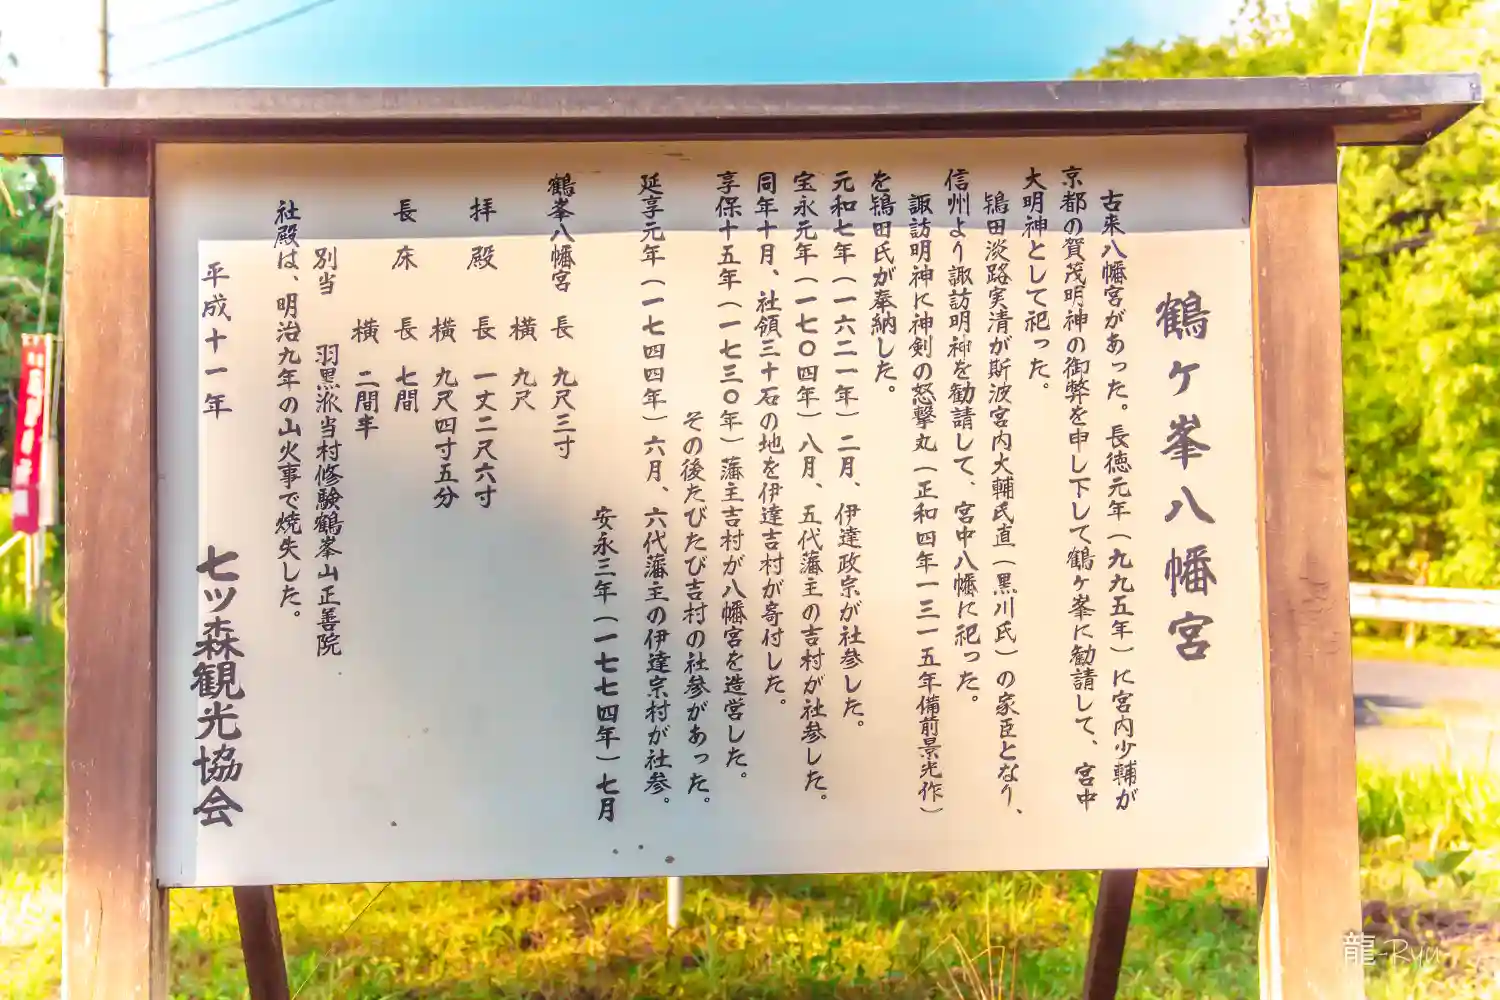 鶴ケ峯八幡宮
古来八幡宮があった。長徳元年(九九五年)に宮内少輔が
京都の賀茂明神の御弊を申し下して鶴ヶ峯に勧請して、宮中
大明神として祀った。
鴇田淡路実清が斯波宮内大輔氏直(黒川氏)の家臣となり、
信州より諏訪明神を勧請して、宮中八幡に祀った。
諏訪明神に神剣の怒撃丸(正和四年一三一五年備前景光作)
を鴇田氏が奉納した。
元和七年(一六二一年)二月、伊達政宗が社参した。
宝永元年(一七〇四年)八月、五代藩主の吉村が社参した。
同年十月、社領三十石の地を伊達吉村が寄付した。
享保十五年(一七三〇年)藩主吉村が八幡宮を造営した。
その後たびたび吉村の社参があった。
延享元年(一七四四年)六月、六代藩主の伊達宗村が社参。
安永三年(一七七四年)七月
鶴峯八幡宮 長 九尺三寸
横 九尺
拝殿 長 一丈二尺六寸
横 九尺四寸五分
長床 長 七間
横 二間半
別当 羽黒派当村修験鶴峯山正善院
社殿は、明治九年の山火事で焼失した。
平成十一年 七ツ森観光協会
龍-Ryu